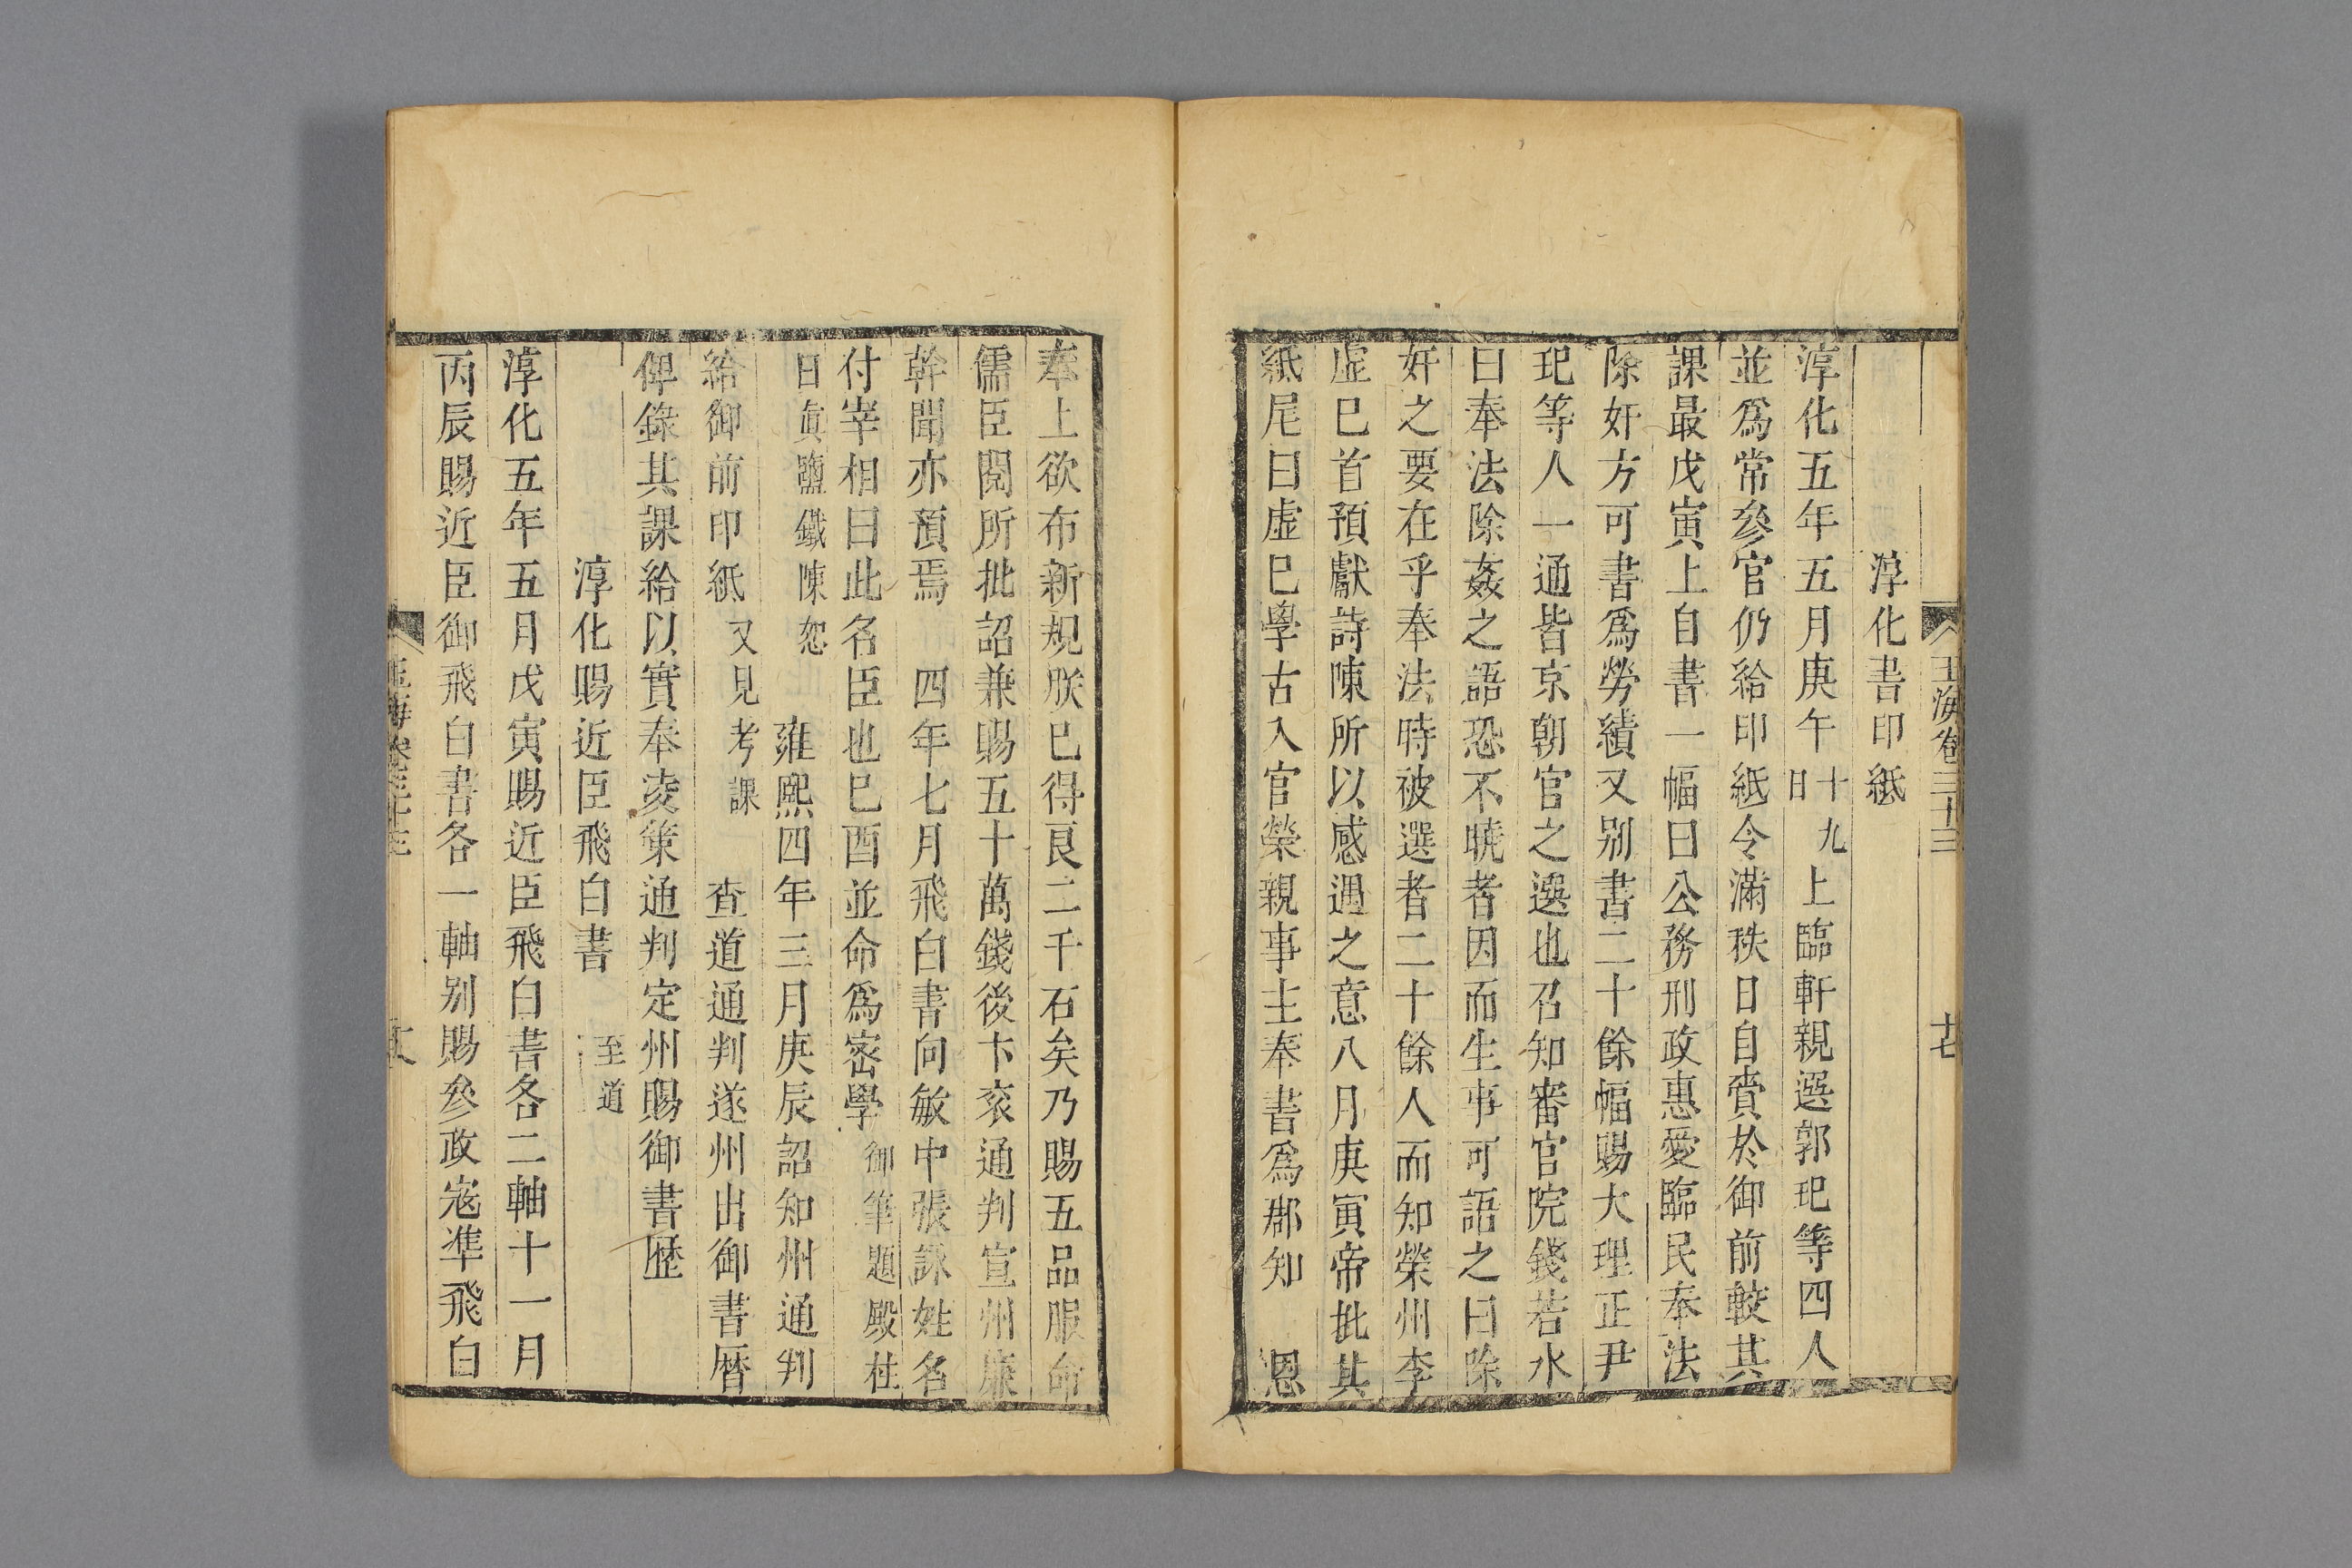 玉海卷三十三
廿七
淳化書印紙
淳化五年五月庚午十九日上臨軒親選郭玘等四人
並爲常參官仍給印紙令滿秩日自賫於御前較其
課最戊寅上自書一幅曰公務刑政惠愛臨民奉法
除奸方可書爲勞績又别書二十餘幅賜大理正尹
玘等人一通皆京朝官之選也召知審官院錢若水
曰奉法除姦之語恐不曉者因而生事可語之曰除
奸之要在乎奉法時被選者二十餘人而知榮州李
虛巳首預獻詩陳所以感遇之意八月庚寅帝批其
紙尾曰虛巳學古入官榮親事主奉書爲郡知 恩
奉上欲布新規朕巳得良二千石矣乃賜五品服命
儒臣閱所批詔兼賜五十萬錢後卞衮通判宣州廉
幹聞亦預焉 四年七月飛白書向敏中張詠姓名
付宰相曰此名臣也巳酉並命爲密學御筆題殿柱
曰眞鹽鐵陳恕 雍熙四年三月庚辰詔知州通判
給御前印紙又見考課 查道通判遂州出御書曆
俾錄其課給以實奉凌策通判定州賜御書歷
淳化賜近臣飛白書 至道
淳化五年五月戊寅賜近臣飛白書各二軸十一月
丙辰賜近臣御飛白書各一軸别賜參政寇準飛白